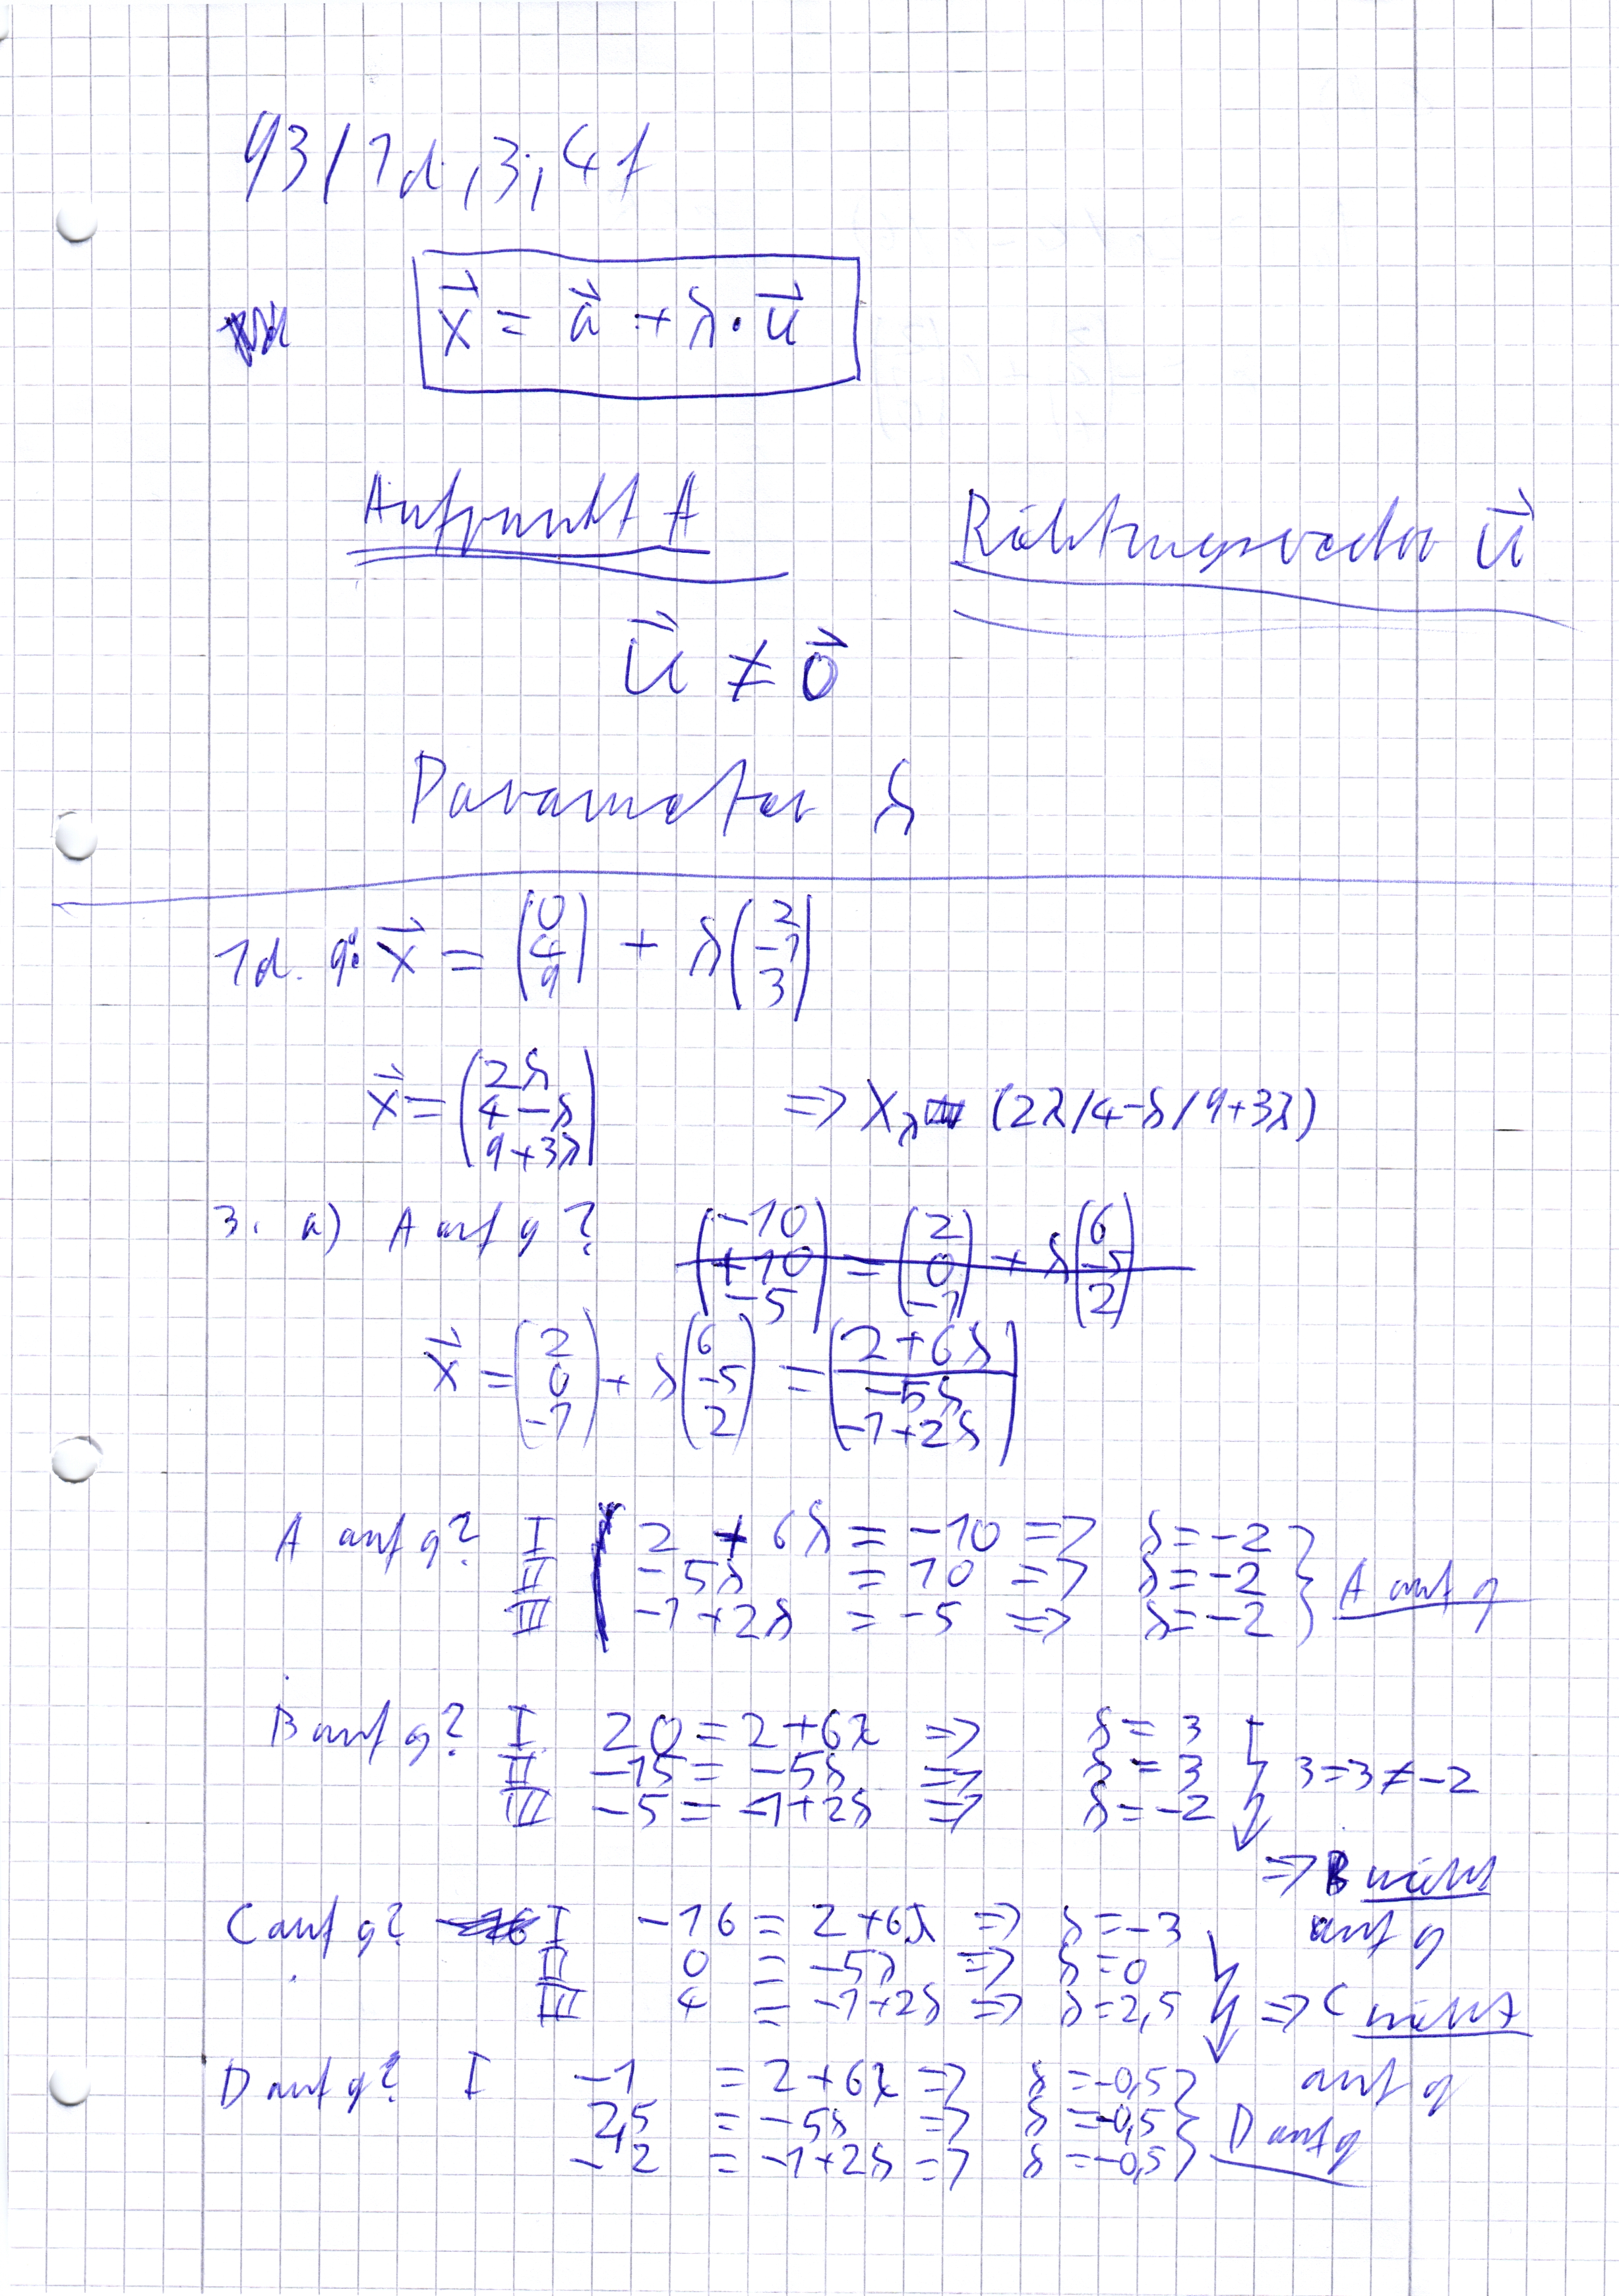 93/1d,3;4f
x⃗ = a⃗ + λ·u⃗
Aufpunkt A Richtungsvector u⃗
u⃗ ≠ 0⃗
Parameter λ
1d. g: x⃗ = (0 4 9) + λ(2 -1 3)
x⃗ = (2λ 4-λ 9+3λ) => Xλ (2λ/4-λ/9+3λ)
3. a) A auf g? (-10 +10 -5) = (2 0 -1) + λ(6 -5 2)
x⃗ = (2 0 -1) + λ(6 -5 2) = (2+6λ -5λ -1+2λ)
A auf g? I 2 + 6λ = -10 => λ = -2
II -5λ = 10 => λ = -2 } A auf g
III -1+2λ = -5 => λ = -2
B auf g? I 20 = 2+6λ => λ = 3
II -15 = -5λ => λ = 3 3=3≠-2
III -5 = -1+2λ => λ = -2
=> B nicht auf g
C auf g? I -16 = 2+6λ => λ = -3
II 0 = -5λ => λ = 0
III 4 = -1+2λ => λ = 2,5 => C nicht auf g
D auf g? I -1 = 2+6λ => λ = -0,5
2,5 = -5λ => λ = -0,5 } D auf g
-2 = -1+2λ => λ = -0,5